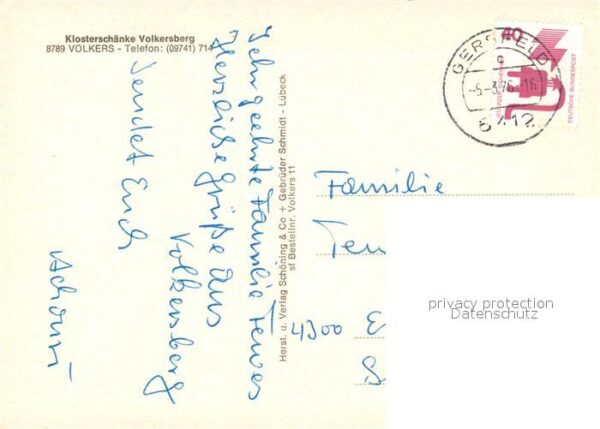 Klosterschänke Volkersberg
8789 VOLKERS - Telefon: (09741) 714
Sehr geehrte Familie Tewes
Herzliche Grüße aus
Volkersberg
sendet Euch
Herst. u. Verlag Schöning & Co + Gebrüder Schmidt - Lübeck
sf Bestellnr. Volkers 11
40
DEUTSCHE BUNDESPOST
GERSFELD
c
-5.-3.76-16
6412
Familie
Tew
4300 E
privacy protection
Datenschutz